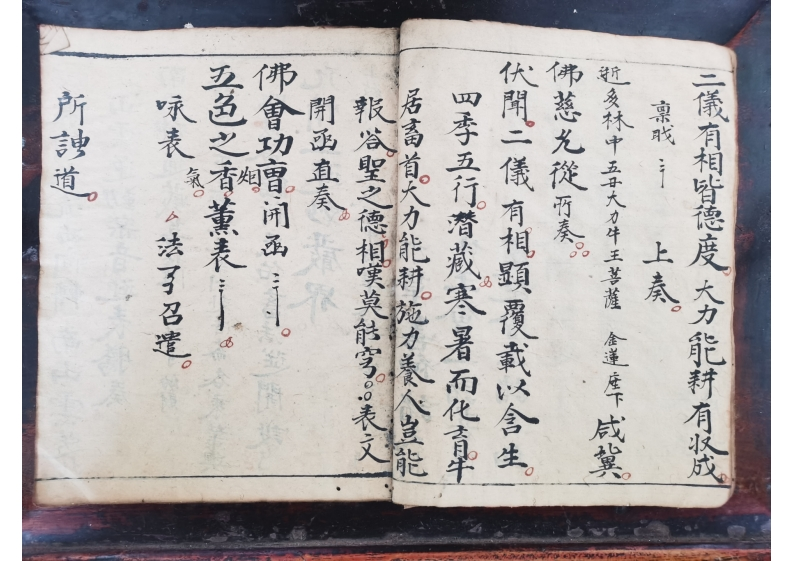 二儀有相皆德度大力能耕有収成
禀戝 上奏
斨多林中五丑大力牛王菩薩 金蓮座下 咸冀
佛慈允從所奏
伏聞二儀有相顕覆載以含生
四季五行潜藏寒暑而化育牛
居畜首大力能耕施力養人豈能
報谷聖之德相嘆莫能穹表文
開函直奏
佛會功曺開函
五色之香烟薰表
咏表氣 法可召遣
所謢道